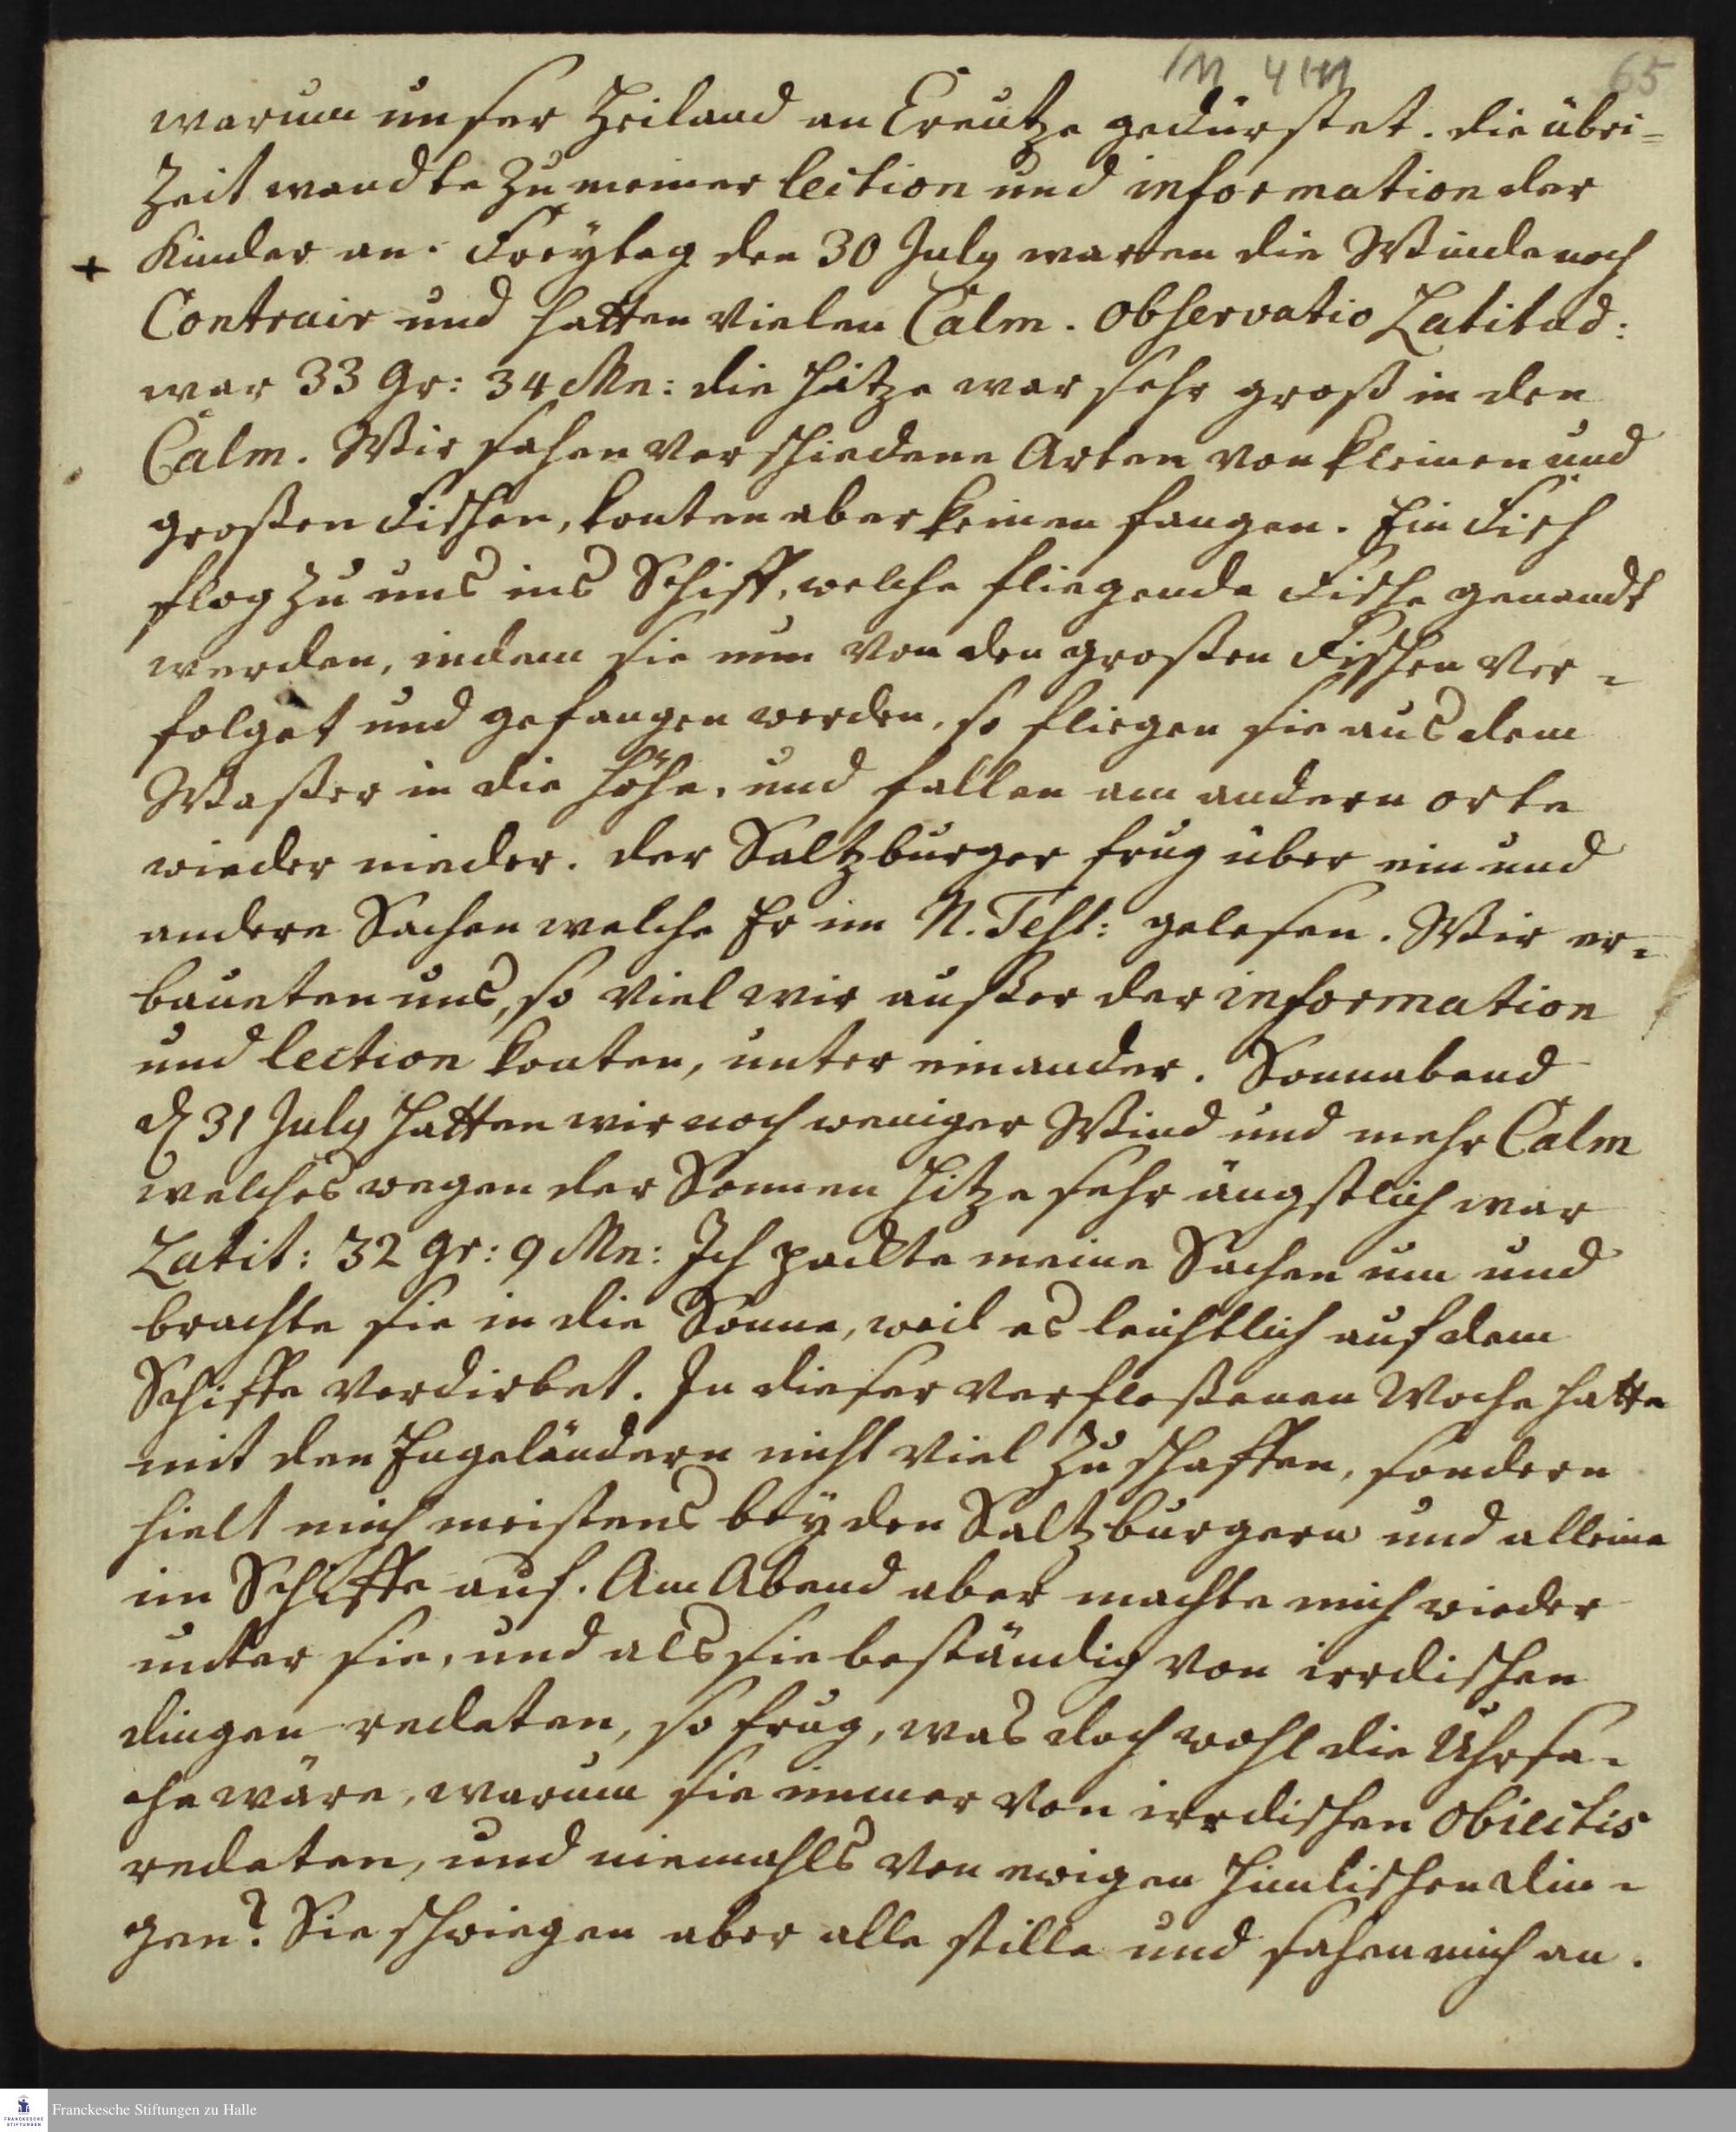 1M 4 1M
65
warum unser Heiland an Creutze gedürstet. die übri=
Zeit wandte zu meiner lection und information der
+ Kinder an. Freytag den 30 July waren die Winde noch
Contrair und hatten vielen Calm. Observatio Latitud:
war 33 Gr: 34 Mn: die Hitze war sehr groß in den
Calm. Wir sahen verschiedene Arten von kleinen und
großen Fischen, konten aber keinen fangen. Ein Fisch
flog zu uns ins Schiff, welche fliegende Fische genandt
werden, indem sie nun von den großen Fischen ver=
folget und gefangen werden, so fliegen sie aus dem
Waßer in die Höhe, und fallen am andern orte
wieder nieder. der Saltzburger frug über ein und
andere Sachen welche Er im N. Test: gelesen. Wir er=
baueten uns, so viel wir außer der information
und lection konten, unter einander. Sonnabend
d 31 July hatten wir noch weniger Wind und mehr Calm
welches wegen der Sonnen Hitze sehr ängstlich war
Latit: 32 gr: 9 Mn: Ich packte meine Sachen um und
brachte sie in die Sonne, weil es leichtlich auf dem
Schiffe verdirbet. In dieser verfloßenen Woche hatte
mit den Engeländern nicht viel zu schaffen, sondern
hielt mich meistens bey den Saltzburgern und alleine
im Schiffe auf. Am Abend aber machte mich wieder
unter sie, und als sie beständig von irrdischen
dingen redeten, so frug, was doch wohl die Uhrsa=
che wäre, warum sie immer von irrdischen Obiectis
redeten, und niemahls von ewigen himlischen din=
gen? Sie schwiegen aber alle stille und sahen mich an.
FRANCKESCHE STIFTUNGEN
Franckesche Stiftungen zu Halle